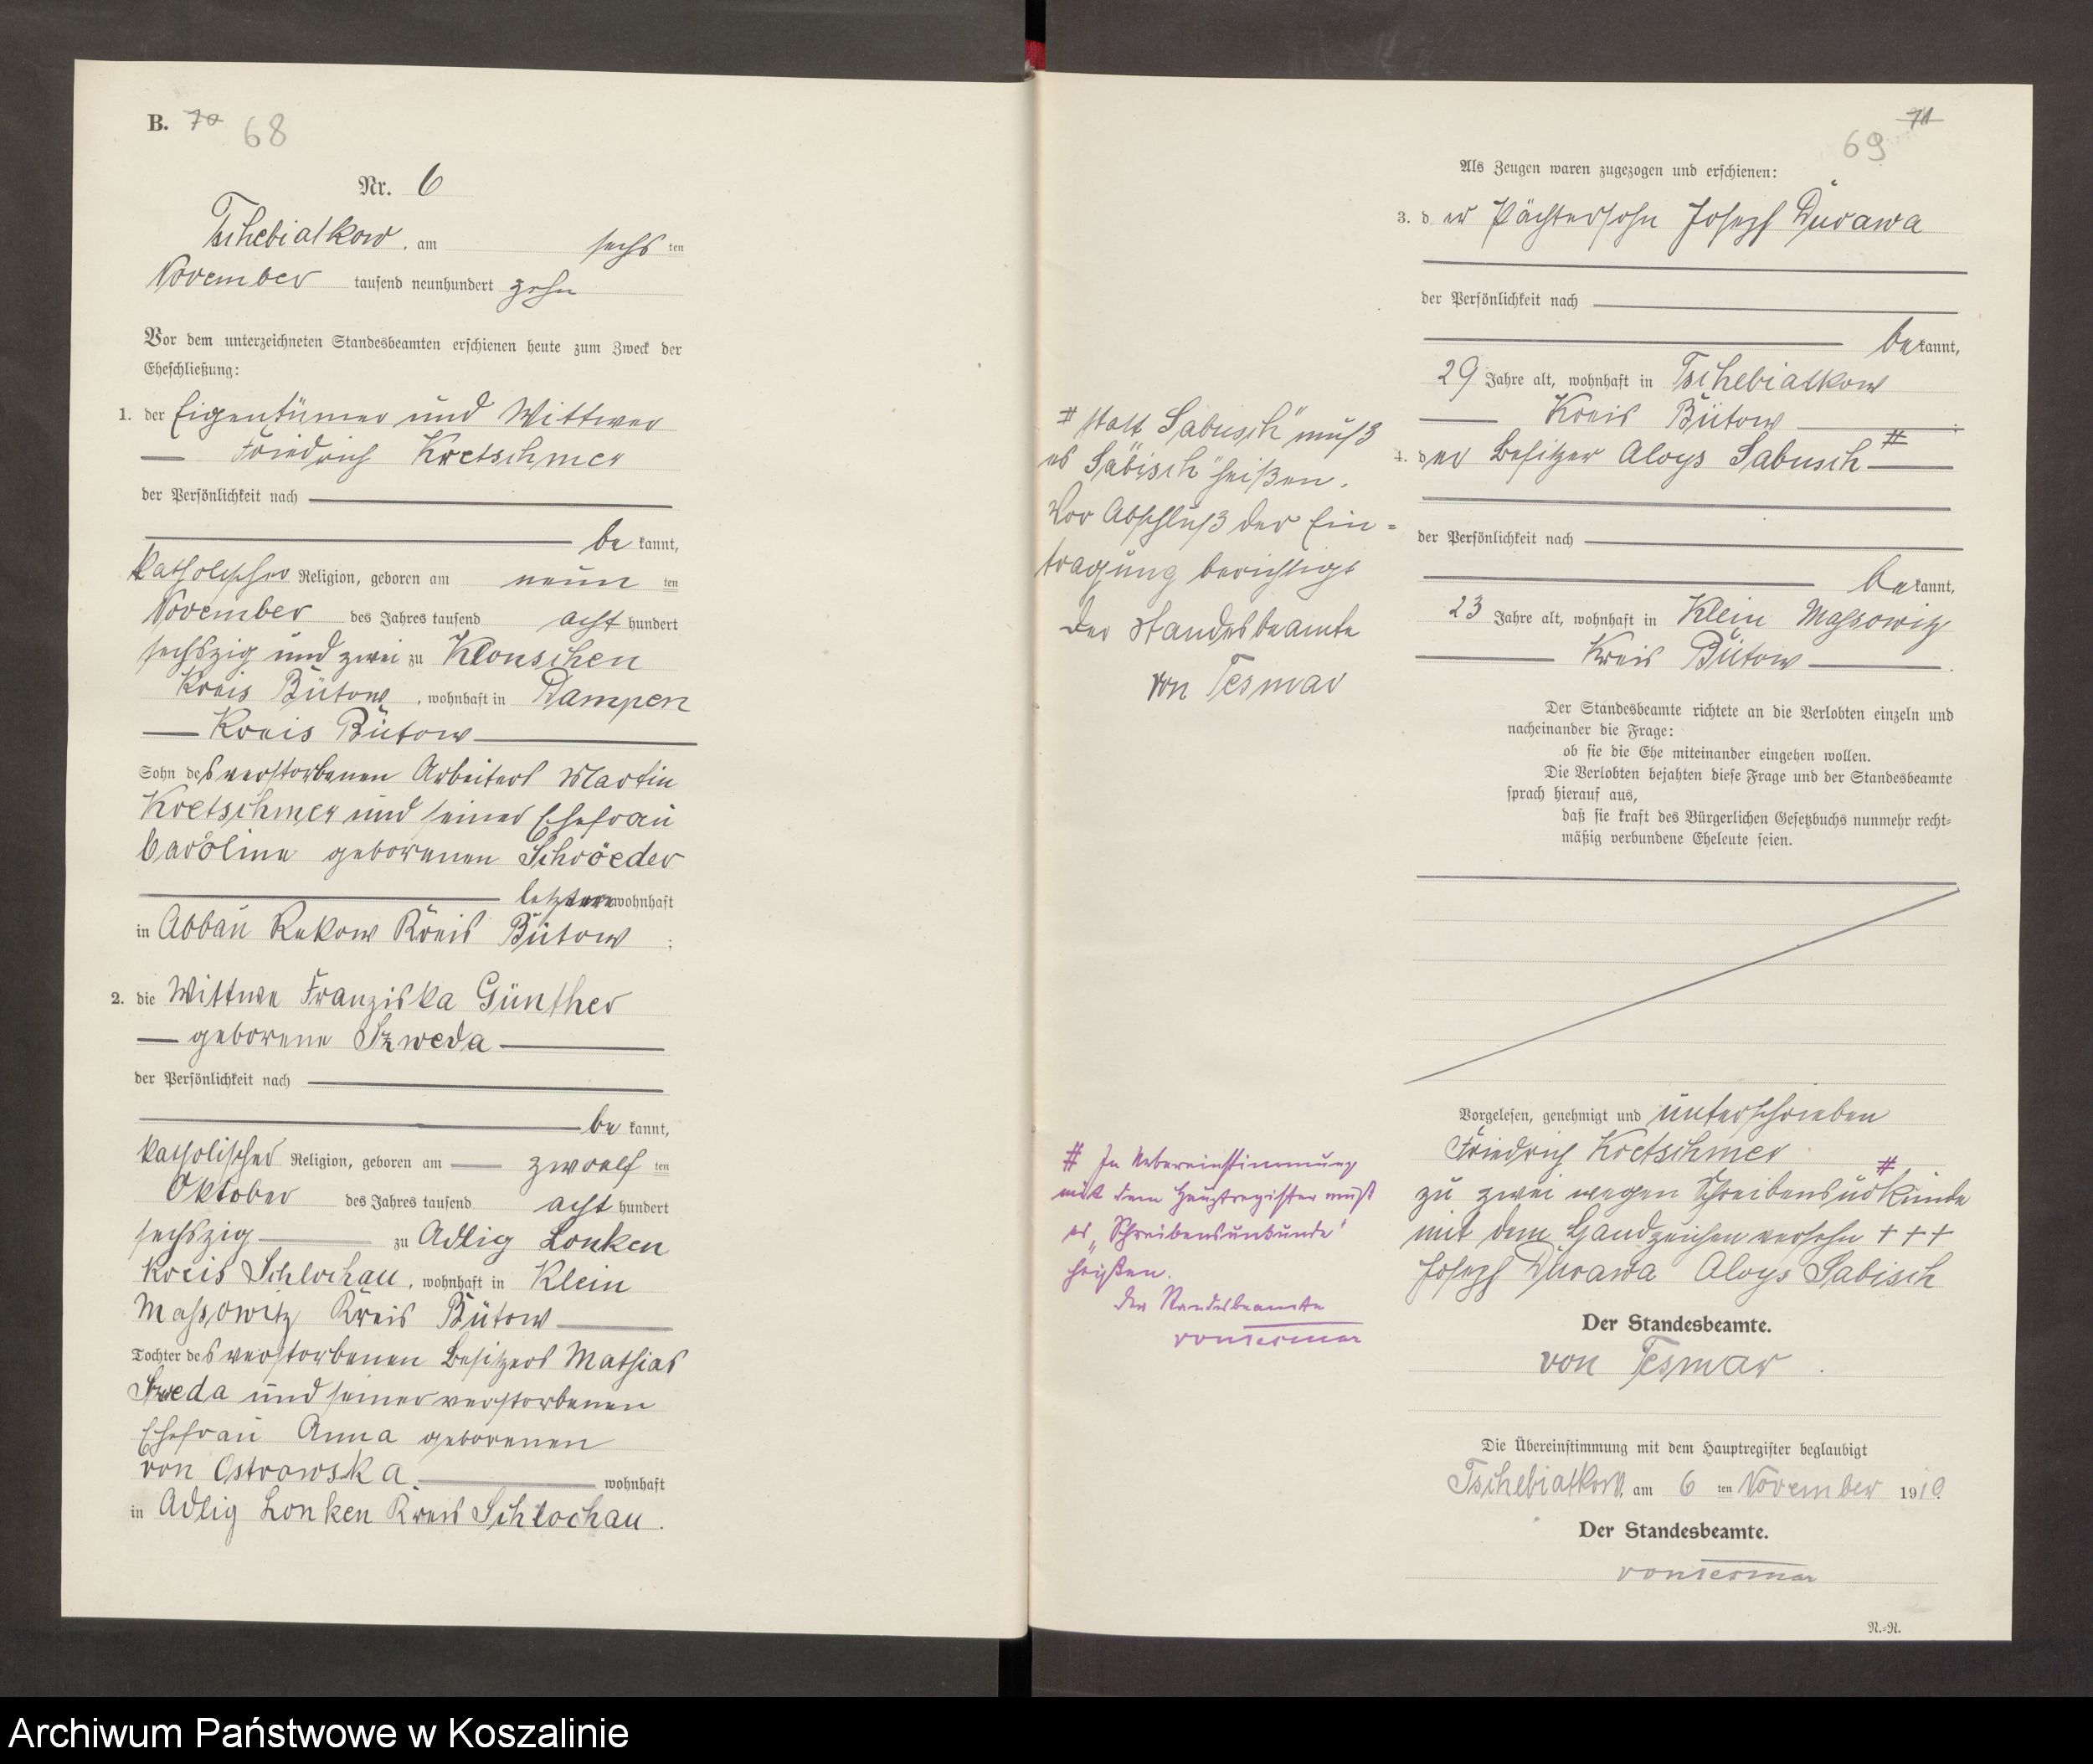 B. 70 68
Nr. 6
Tschebiatkow, am sechs ten
November tausend neunhundert zehn
Vor dem unterzeichneten Standesbeamten erschienen heute zum Zweck der
Eheschließung:
1. der Eigentümer und Wittwer
Friedrich Kretschmer
der Persönlichkeit nach
be kannt,
katholischer Religion, geboren am neun ten
November des Jahres tausend acht hundert
sechszig und zwei zu Klonschen
Kreis Bütow, wohnhaft in Dampen
Kreis Bütow
Sohn des verstorbenen Arbeiters Martin
Kretschmer und seiner Ehefrau
Caroline geborenen Schröeder
letztere wohnhaft
in Abbau Rekow Kreis Bütow ;
2. die Wittwe Franziska Günther
geborene Szweda
der Persönlichkeit nach
be kannt,
katholischer Religion, geboren am zwoelf ten
Oktober des Jahres tausend acht hundert
sechszig zu Adlig Lonken
Kreis Schlochau, wohnhaft in Klein
Massowitz Kreis Bütow
Tochter des verstorbenen Besitzers Mathias
Szweda und seiner verstorbenen
Ehefrau Anna geborenen
von Ostrowska wohnhaft
in Adlig Lonken Kreis Schlochau.
71
69
Als Zeugen waren zugezogen und erschienen:
3. der Pächtersohn Joseph Durawa
der Persönlichkeit nach
be kannt,
29 Jahre alt, wohnhaft in Tschebiatkow
Kreis Bütow ;
4. der Besitzer Aloys Sabusch #
der Persönlichkeit nach
be kannt,
23 Jahre alt, wohnhaft in Klein Massowitz
Kreis Bütow .
# statt Sabusch" muß
es Säbisch" heißen.
Vor Abschluß der Ein=
tragung berichtigt
Der Standesbeamte
von Tesmar
Der Standesbeamte richtete an die Verlobten einzeln und
nacheinander die Frage:
ob sie die Ehe miteinander eingehen wollen.
Die Verlobten bejahten diese Frage und der Standesbeamte
sprach hierauf aus,
daß sie kraft des Bürgerlichen Gesetzbuchs nunmehr recht-
mäßig verbundene Eheleute seien.
Vorgelesen, genehmigt und unterschrieben
Friedrich Kretschmer
zu zwei wegen Schreibensurkunde #
mit dem Handzeichen versehn +++
Joseph Durawa Aloys Sabisch
Der Standesbeamte.
von Tesmar .
# In Uebereinstimmung
mit dem Hauptregister muß
es „Schreibensunkunde"
heißen.
Der Standesbeamte
von Tesmar
Die Übereinstimmung mit dem Hauptregister beglaubigt
Tschebiatkow, am 6 ten November 1910.
Der Standesbeamte.
von Tesmar
N.-R.
Archiwum Państwowe w Koszalinie